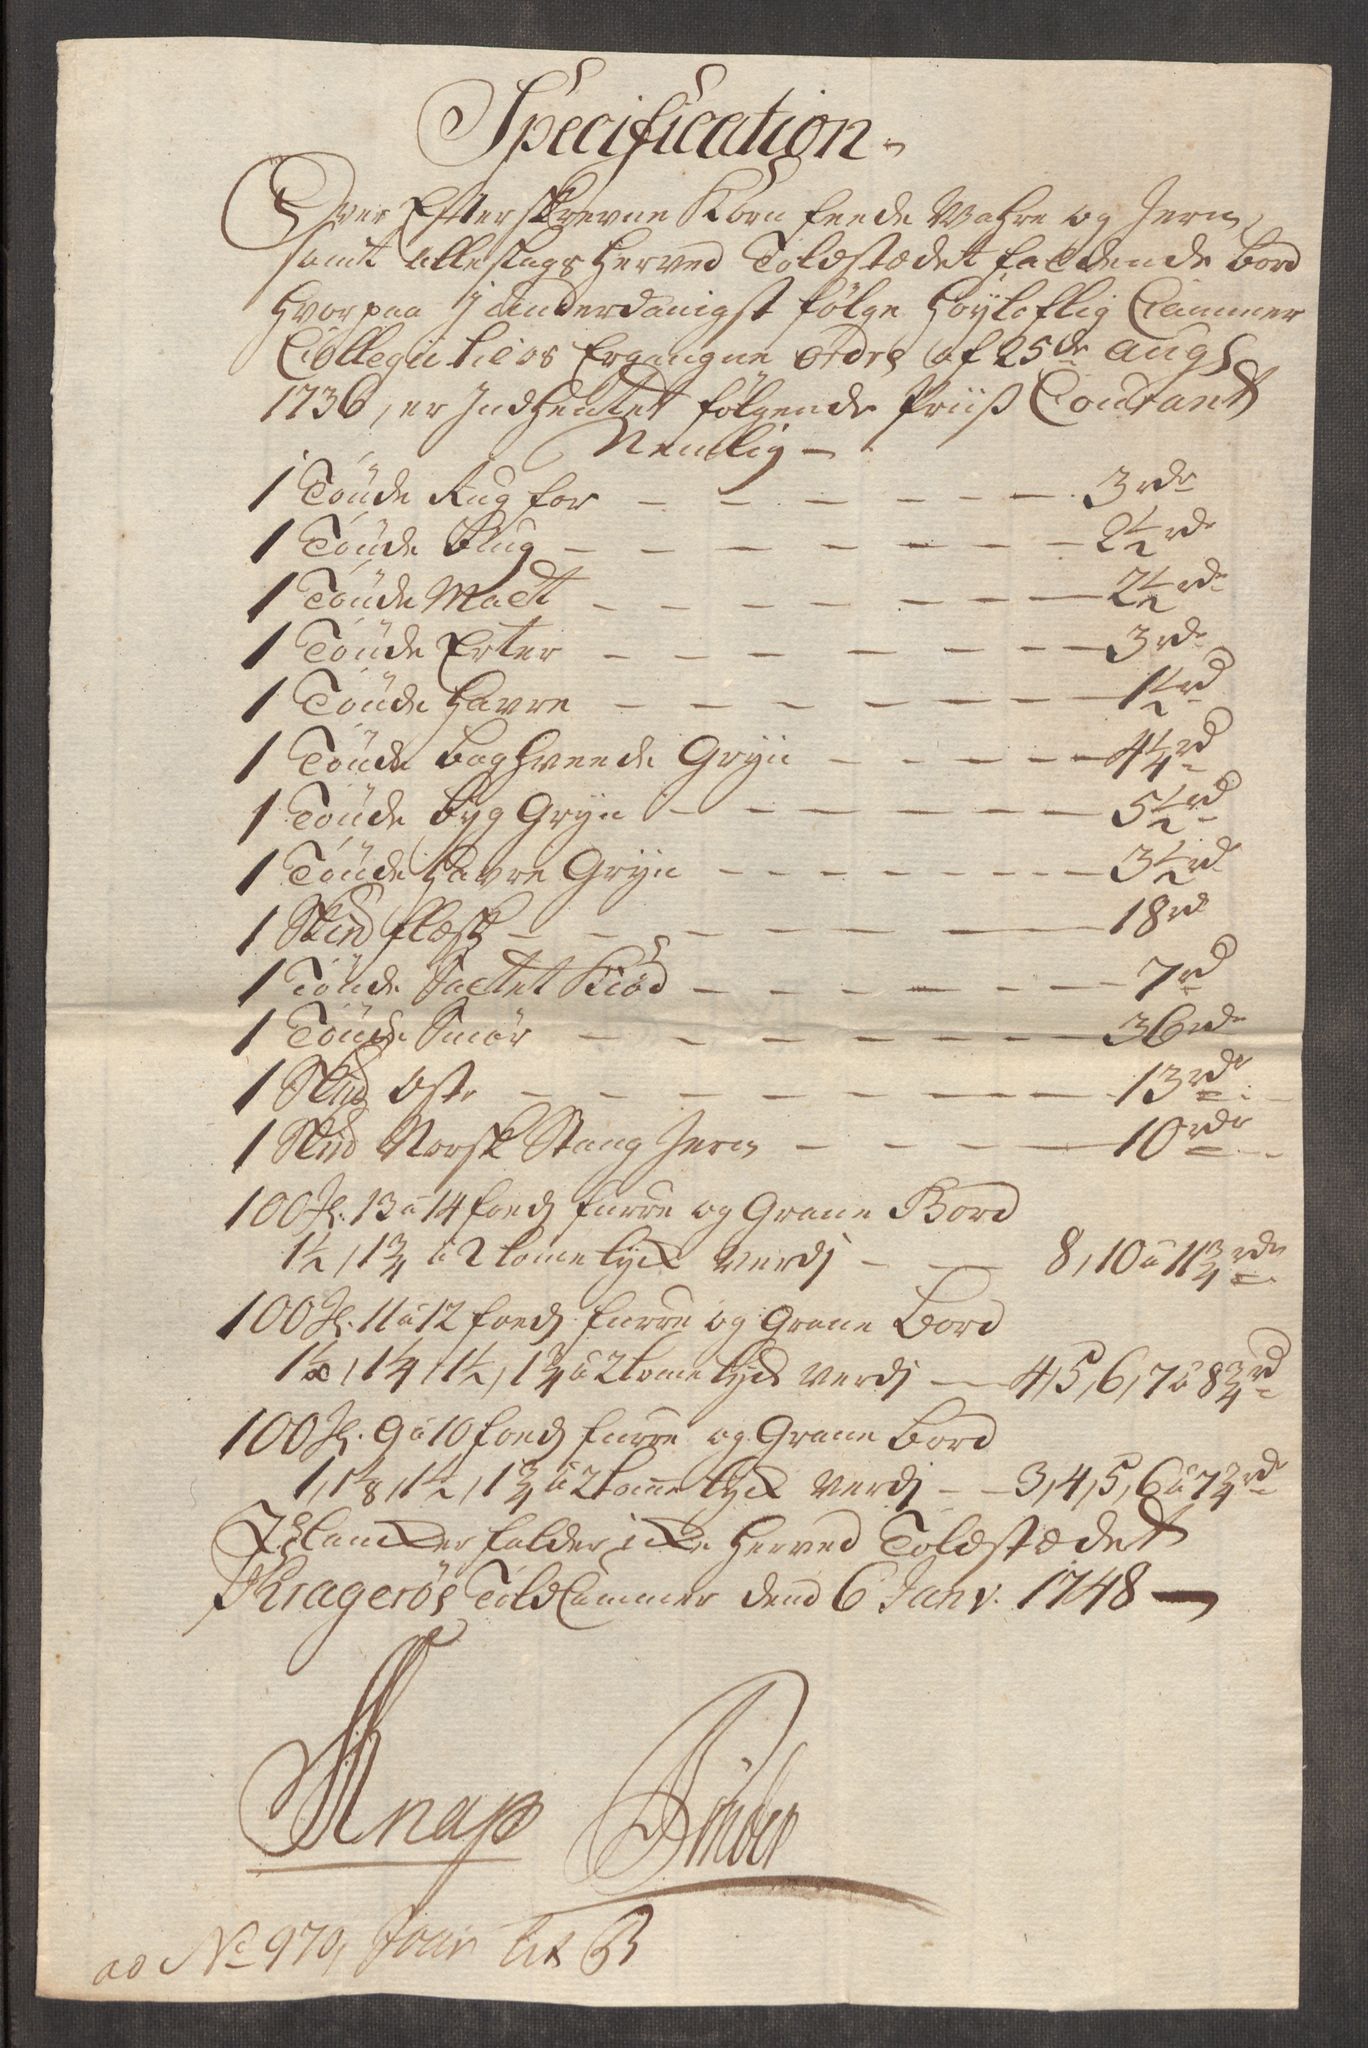 Specification
Over Efterskrevne Korn feede Wahre og Jern,
samt alle slags herved Toldstædet faldende bord
hvorpaa i underdanigst følge Høyloflig Cammer
Collegii til os Ergangne Ordre af 25de Augs
1736, er Indhentet følgende Priiß Courant
Nemlig -
1 Tønde Rug for - - - - - - 3 rdr
1 Tønde Biug - - - - - - - 2½ rdr
1 Tønde Malt - - - - - - - 2½ rdr
1 Tønde Erter - - - - - - - 3 rdr
1 Tønde Havre - - - - - - - 1½ rd
1 Tønde boghveede Gryn - - - - - 4¼ rd
1 Tønde byg Gryn - - - - - - - 5½ rd
1 Tønde Havre Gryn - - - - - - - 3½ rd
1 Skpd flæsk - - - - - - 18 rd
1 Tønde Saltet Kiød - - - - - - 7 rd
1 Tønde Smør - - - - - - - 36 rdr
1 Skpd Ost - - - - - - - 13 rdr
1 Skpd Norsk Stang Jern - - - - 10 rdr
100 St. 13 a 14 foeds furre og Grane Bord
1½, 1¾ a 2 tome tyck verdj - - 8, 10 a 11¾ rdr
100 St. 11 a 12 foeds furre og Grane Bord
1⅛, 1¼, 1½, 1¾ a 2 tome tyck verdj - 4, 5, 6, 7 a 8¾ rd
100 St. 9 a 10 foeds furre og Grane Bord
1, 1⅛, 1½, 1¾ a 2 tomme tyck verdj - - 3, 4, 5, 6 a 7¾ rdr
falder icke herved Toldstædet
Kragerøes Told Cammer dend 6 Janv. 1748
Knap
ad No 970, Jour Lit B